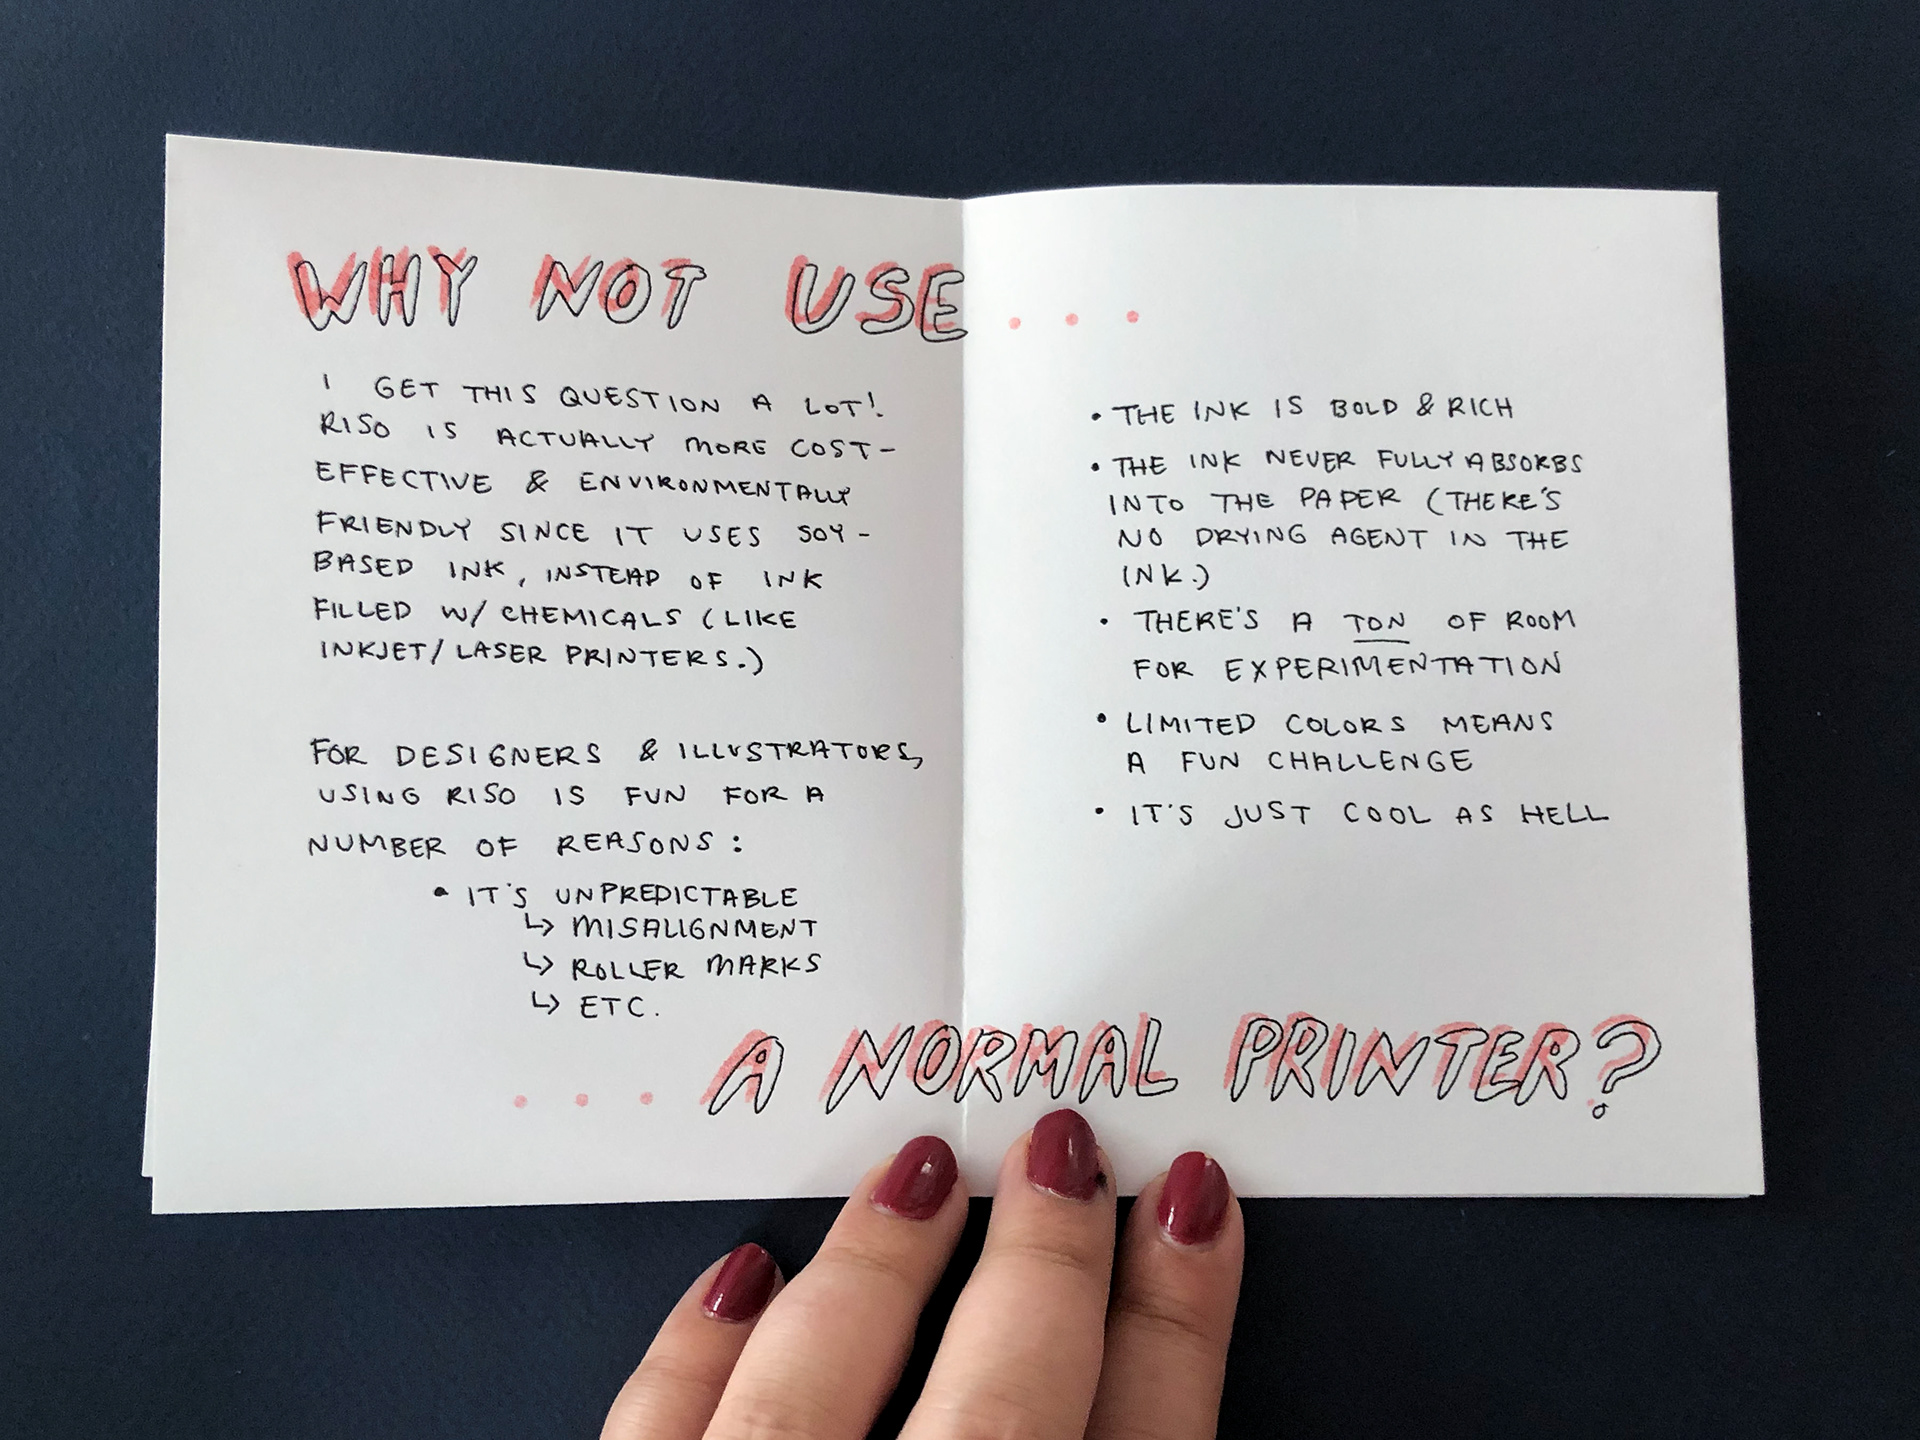 WHY NOT USE...
I GET THIS QUESTION A LOT!
RISO IS ACTUALLY MORE COST-
EFFECTIVE & ENVIRONMENTALLY
FRIENDLY SINCE IT USES SOY-
BASED INK, INSTEAD OF INK
FILLED W/ CHEMICALS (LIKE
INKJET/LASER PRINTERS.)
FOR DESIGNERS & ILLUSTRATORS,
USING RISO IS FUN FOR A
NUMBER OF REASONS:
• IT'S UNPREDICTABLE
↳ MISALIGNMENT
↳ ROLLER MARKS
↳ ETC.
• THE INK IS BOLD & RICH
• THE INK NEVER FULLY ABSORBS
INTO THE PAPER (THERE'S
NO DRYING AGENT IN THE
INK.)
• THERE'S A TON OF ROOM
FOR EXPERIMENTATION
• LIMITED COLORS MEANS
A FUN CHALLENGE
• IT'S JUST COOL AS HELL
...A NORMAL PRINTER?